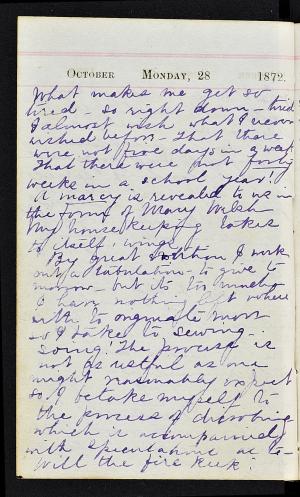 October Monday, 28 1872.
What makes me get so
tired - so right down - tired
I almost wish what I never
wished before - That there
were not five days in a week
That there were not forty
weeks in a school year!
A marcy is revealed to us in
the form of Mary Welsh
My house keeping takes
to itself wings
By great I work
out a tabulation - to give to
morrow - but
I have nothing left where
with to originate more
so I take to sewing.
The process is
not as restful as one
might reasonably expect
so I betake myself to
the process of disrobing
which is accompanied
with speculations as to -
Will the fire keep?